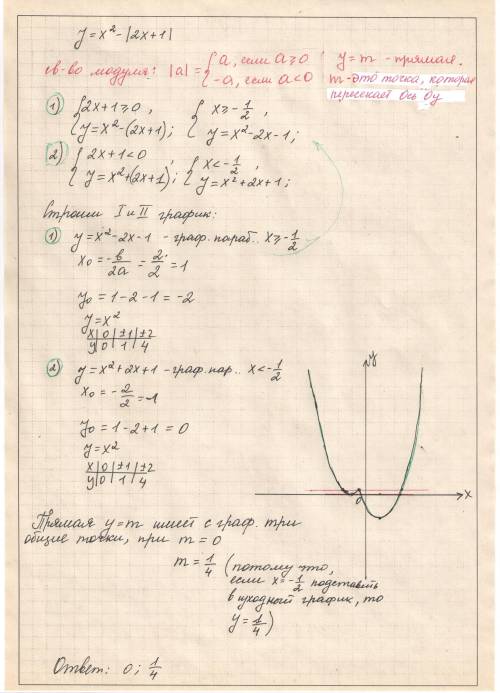 y=x²-|2x+1|
св-во модуля: |a|={a, если a≥0
-a, если a<0
y=m - прямая.
m-это точка, которая
пересекает ось Oy
1) {2x+1≥0, {x≥-1/2,
y=x²-(2x+1); y=x²-2x-1;
2) {2x+1<0, {x<-1/2,
y=x²+(2x+1); y=x²+2x+1;
Строим I и II график:
1) y=x²-2x-1 - граф. параб.. x≥-1/2
x₀=-b/2a=2/2=1
y₀=1-2-1=-2
y=x²
x|0|±1|±2
y|0|1|4
2) y=x²+2x+1 - граф. пар.. x<-1/2
x₀=-2/2=-1
y₀=1-2+1=0
y=x²
x|0|±1|±2
y|0|1|4
y
x
0
Прямая y=m имеет с граф. три
общие точки, при m=0
m=1/4 (потому что,
если x=-1/2 подставить
в исходный график, то
y=1/4)
Ответ: 0; 1/4